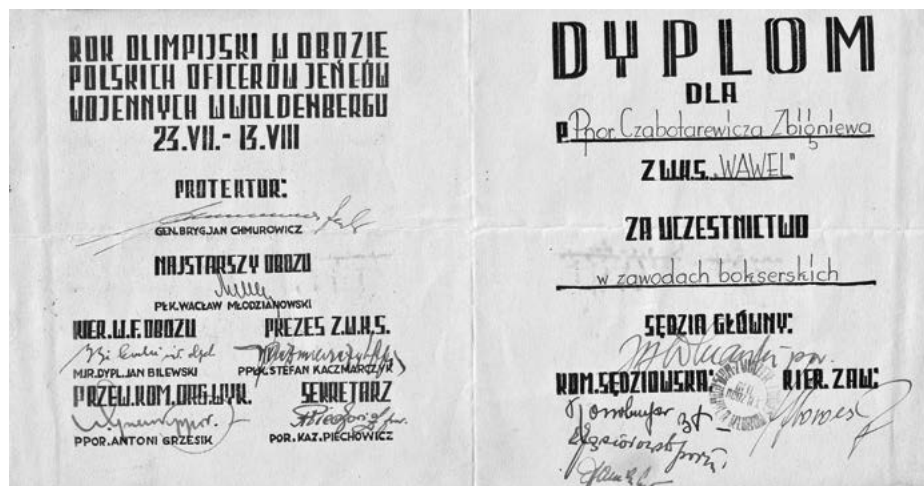 ROK OLIMPIJSKI W OBOZIE
POLSKICH OFICERÓW JEŃCÓW
WOJENNYCH W WOLDENBERGU
23.VII.- 13.VIII
PROTEKTOR:
GEN.BRYG JAN CHMUROWICZ
NAJSTARSZY OBOZU
PŁK.WACŁAW MŁODZIANOWSKI
KIER.W.F.OBOZU PREZES Z.W.K.S.
MJR.DYPL.JAN BILEWSKI PPŁK.STEFAN KACZMARCZYK
PRZEW.KOM.ORG.WYK. SEKRETARZ
PPOR.ANTONI GRZESIK POR.KAZ.PIECHOWICZ
DYPLOM
DLA
P. Ppor. Czabotarewicza Zbigniewa
Z W.K.S. „WAWEL"
ZA UCZESTNICTWO
w zawodach bokserskich
SĘDZIA GŁÓWNY:
KOM.SĘDZIOWSKA: KIER.ZAW: